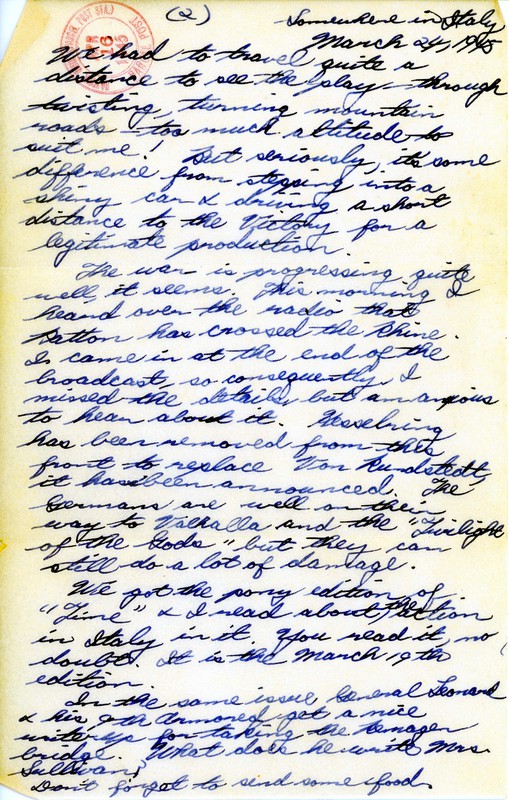 (2)
Somewhere in Italy
March 24, 1945
We had to travel quite a
distance to see the play - through
twisting, turning mountain
roads - too much altitude to
suit me! But seriously, it's some
difference from stepping into a
shiny car & driving a short
distance to the Victory for a
legitimate production.
The war is progressing quite
well, it seems. This morning I
heard over the radio that
Patton has crossed the Rhine.
I came in at the end of the
broadcast, so consequently, I
missed the details, but am anxious
to hear about it. Kesselring
has been removed from this
front to replace Von Rundstedt,
it has been announced. The
Germans are well on their
way to Valhalla and the "Twilight
of the Gods" but they can
still do a lot of damage.
We got the pony edition of
"Time" & I read about the action
in Italy in it. You read it, no
doubt. It is the March 19th
edition.
In the same issue General Leonard
& his 9th Armored get a nice
write up for taking the Remagen
bridge. What does he write Mrs.
Sullivan?
Don't forget to send some food.